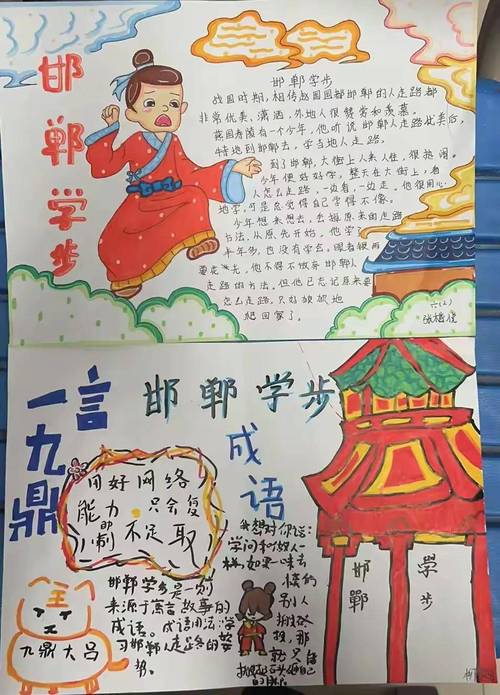 邯郸学步
邯郸学步
战国时期,相传赵国国都邯郸的人走路都
非常优美、潇洒,外地人很赞赏和羡慕。
燕国寿陵有一个少年,他听说邯郸人走路优美后,
特地到邯郸去,学当地人走路。
到了邯郸,大街上人来人往,很热闹。
少年便好好学,整天在大街上,看
人怎么走路,一边看,一边走,他很用心
地学。可是总觉得自己学得不像。
少年想来想去,去掉原来的走路
方法,从原先开始,他学了
半年多,也没有学会。眼看银两
要花光,他不得不放弃邯郸人
走路的方法。但他已忘记原来是
怎么走路,只好
地
爬回家了。
六(2)
一言九鼎
邯郸学步
成语
用好网络
能力 只会复
即
制 不足取
邯郸学步是一则
来源于寓言故事的
成语。成语用法:学
习邯郸人走路的姿
势。
九鼎大吕
我想对你说:
学问和做人一
样,如果一味去
模仿
别人
那
就只
邯郸
学步